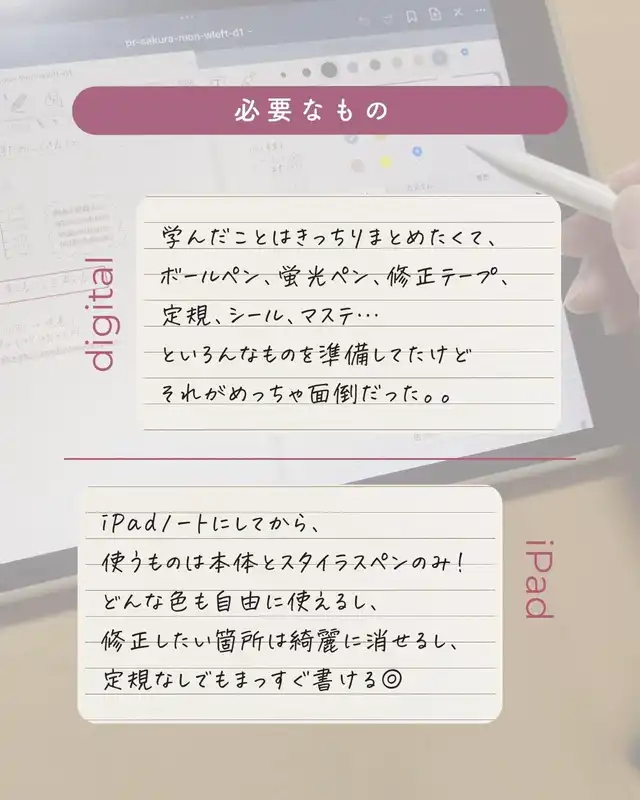 pr-sakura-mon-wleft-d1
必要なもの
digital
学んだことはきっちりまとめたくて、
ボールペン、蛍光ペン、修正テープ、
定規、シール、マステ…
といろんなものを準備してたけど
それがめっちゃ面倒だった。。
iPadノートにしてから、
使うものは本体とスタイラスペンのみ！
どんな色も自由に使えるし、
修正したい箇所は綺麗に消せるし、
定規なしでもまっすぐ書ける◎
iPad